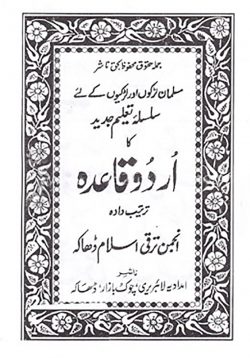 جملہ حقوق محفوظ بحق ناشر
مسلمان لڑکوں اور لڑکیوں کے لئے
سلسلۂ تعلیم جدید
کا
اُردو قاعدہ
ترتیب دادہ
انجمن ترقی اسلام ڈھاکہ
ناشر
امدادیہ لائبریری، چوک بازار، ڈھاکہ